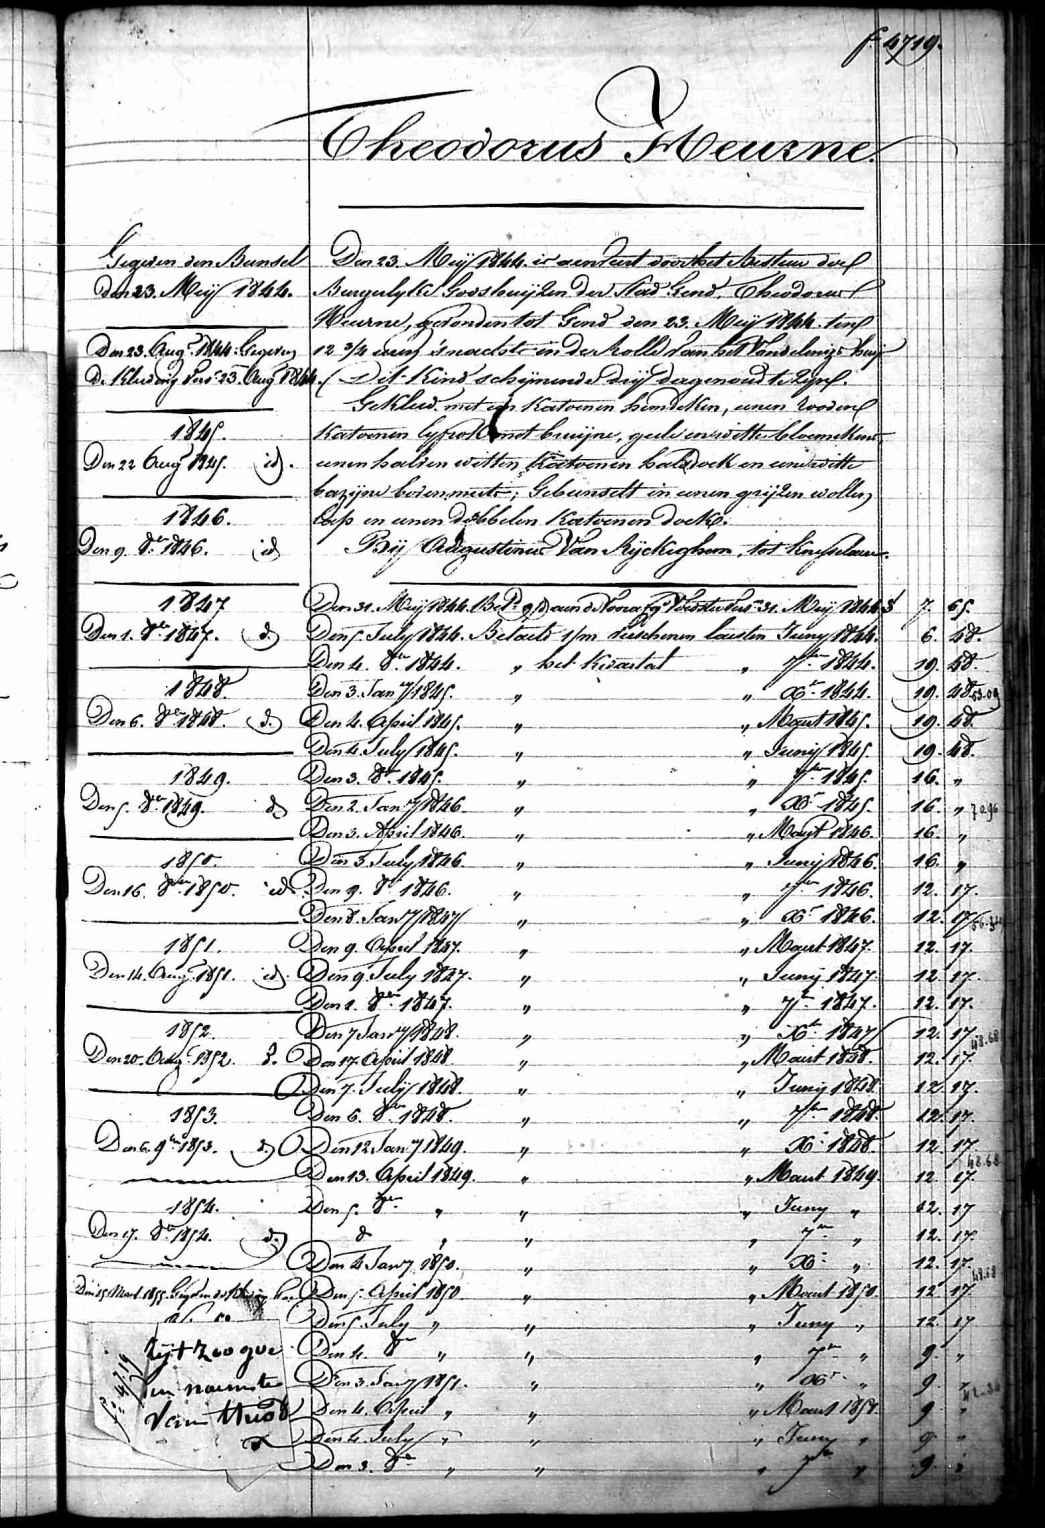 f° 4719.
Theodorus Heurne.
Gegeven den Bunsel
den 23. Meij 1844.
Den 23. Aug. 1844. Gegeven
de Kleeding 23. Aug 1844
1845.
Den 22 Aug 1845. id.
1846.
Den 9. 8er 1846. id
1847
Den 1. 8er 1847. d.
1848.
Den 6. 8er 1848. d.
1849.
Den 5. 8er 1849. d
1850.
Den 16. 8er 1850. id
1851.
Den 14. Aug. 1851. id.
1852.
Den 20. Aug. 1852. d.
1853.
Den 6. 9er 1853. d.
1854.
Den 17. 8er 1854. d.
Den 15 Maart 1855.
f° 4719
Den 23. Meij 1844. is aenveert door het Bestuur der
Burgerlyke Godshuijzen der Stad Gend, Theodorus
Heurne, gevonden tot Gend den 23. Meij 1844. ten
12 3/4 uren 's nachts in de Rolle van het Vondelings huijs
Dit Kind schijnende drij dagen oud te Zijn.
Gekleed met een Katoenen hemdeken, eenen rooden
Katoenen lyfrok met bruijne, geele en witte bloemekens,
eenen halven witten Katoenen halsdoek en eene witte
bazijne bovenmuts; Gebunselt in eenen grijzen wollen
lap en eenen dobbelen Katoenen doek.
Bij Augustinus Van Ryckeghem, tot Knesselaere.
Den 31. Meij 1844. 31. Meij 1844 7. 65.
Den 5. July 1844. Betaelt 1/m verschenen laesten Juny 1844. 6. 48.
Den 4. 8er 1844. „ het Kwartal „ 7ber 1844. 19. 48.
Den 3. Jany 1845. „ „ Xr 1844. 19. 48
Den 4. April 1845. „ „ Maart 1845. 19. 48.
Den 4. July 1845. „ „ Junij 1845. 19. 48.
Den 3. 8er 1845. „ „ 7ber 1845. 16. „
Den 2. Jany 1846. „ „ Xr 1845. 16. „ 70.96
Den 3. April 1846. „ „ Maart 1846. 16. „
Den 3. July 1846. „ „ Junij 1846. 16. „
Den 9. 8r 1846. „ „ 7ber 1846. 12. 17.
Den 8. Jany 1847 „ „ Xr 1846. 12. 17
Den 9. April 1847. „ „ Maart 1847. 12. 17.
Den 9 July 1847. „ „ Junij 1847. 12. 17.
Den 1. 8er 1847. „ „ 7br 1847. 12. 17.
Den 7 Jany 1848. „ „ Xr 1847 12. 17 48.68
Den 17. April 1848 „ „ Maart 1848. 12. 17.
Den 7. July 1848. „ „ Junij 1848. 12. 17.
Den 6. 8er 1848. „ „ 7ber 1848. 12. 17.
Den 12 Jany 1849. „ „ Xr 1848. 12. 17. 48.68
Den 13. April 1849. „ „ Maart 1849 12. 17.
Den 5. 8er „ „ „ Juny „ 12. 17
d „ „ „ 7er „ 12. 17.
Den 4 Jany. 1850. „ „ Xr „ 12. 17. 48.68
Den 5. April 1850 „ „ Maart 1850. 12 17.
Den 5. July „ „ „ Juny „ 12. 17
Den 4. 8er „ „ „ 7er „ 9. „
Den 3. Jany 1851. „ „ Xr „ 9. „
Den 4. April „ „ „ Maart 1851. 9 „
Den 4. July „ „ „ Juny „ 9 „
Den 3. 8er „ „ „ 7er „ 9. „